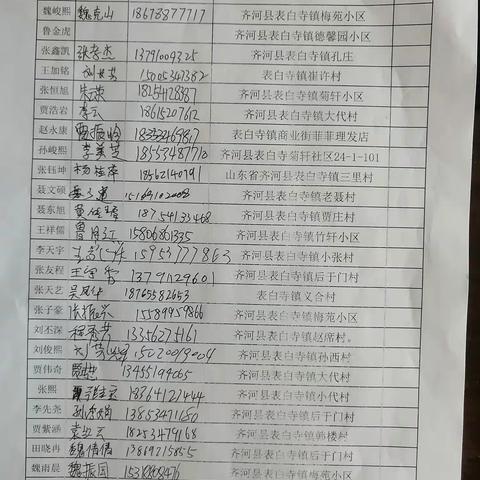 魏峻熙 魏克山 18678877717 齐河县表白寺镇梅苑小区
鲁金虎 齐河县表白寺镇德馨园小区
张鑫凯 张孝杰 13791009325 齐河县表白寺镇孔庄
王加铭 15005347382 表白寺镇崔许村
张恒旭 朱荣 18254128387 齐河县表白寺镇菊轩小区
贾浩岩 李云 18615207612 齐河县表白寺镇大代村
赵永康 表白寺镇商业街菲菲理发店
孙峻熙 李美芝 18553487710 齐河县表白寺菊轩社区24-1-101
张钰坤 杨桂萍 18562140791 山东省齐河县表白寺镇三里村
聂文硕 齐河县表白寺镇老聂村
聂东旭 18754133468 齐河县表白寺镇贾庄村
王祥儒 15806801335 齐河县表白寺镇竹轩小区
李天宇 15953777863 齐河县表白寺镇小张村
张友程 13791129601 齐河县表白寺镇后于门村
张天艺 吴风华 18765582653 表白寺镇义合村
张子豪 15589959866 齐河县表白寺镇梅苑小区
刘丕深 程秀芳 13356275161 齐河县表白寺镇赵席村。
刘俊熙 15020019004 齐河县表白寺镇孙西村
贾伟奇 13455194065 齐河县表白寺镇大代村
张熙 18364121444 齐河县表白寺镇小代村
李先尧 13853491650 齐河县表白寺镇后于门村
贾紫涵 18253479168 齐河县表白寺镇韩楼村
田晓冉 魏倩倩 13819215855 齐河县表白寺镇后于门村
魏雨晨 魏振国 15318808476 齐河县表白寺镇梅苑小区